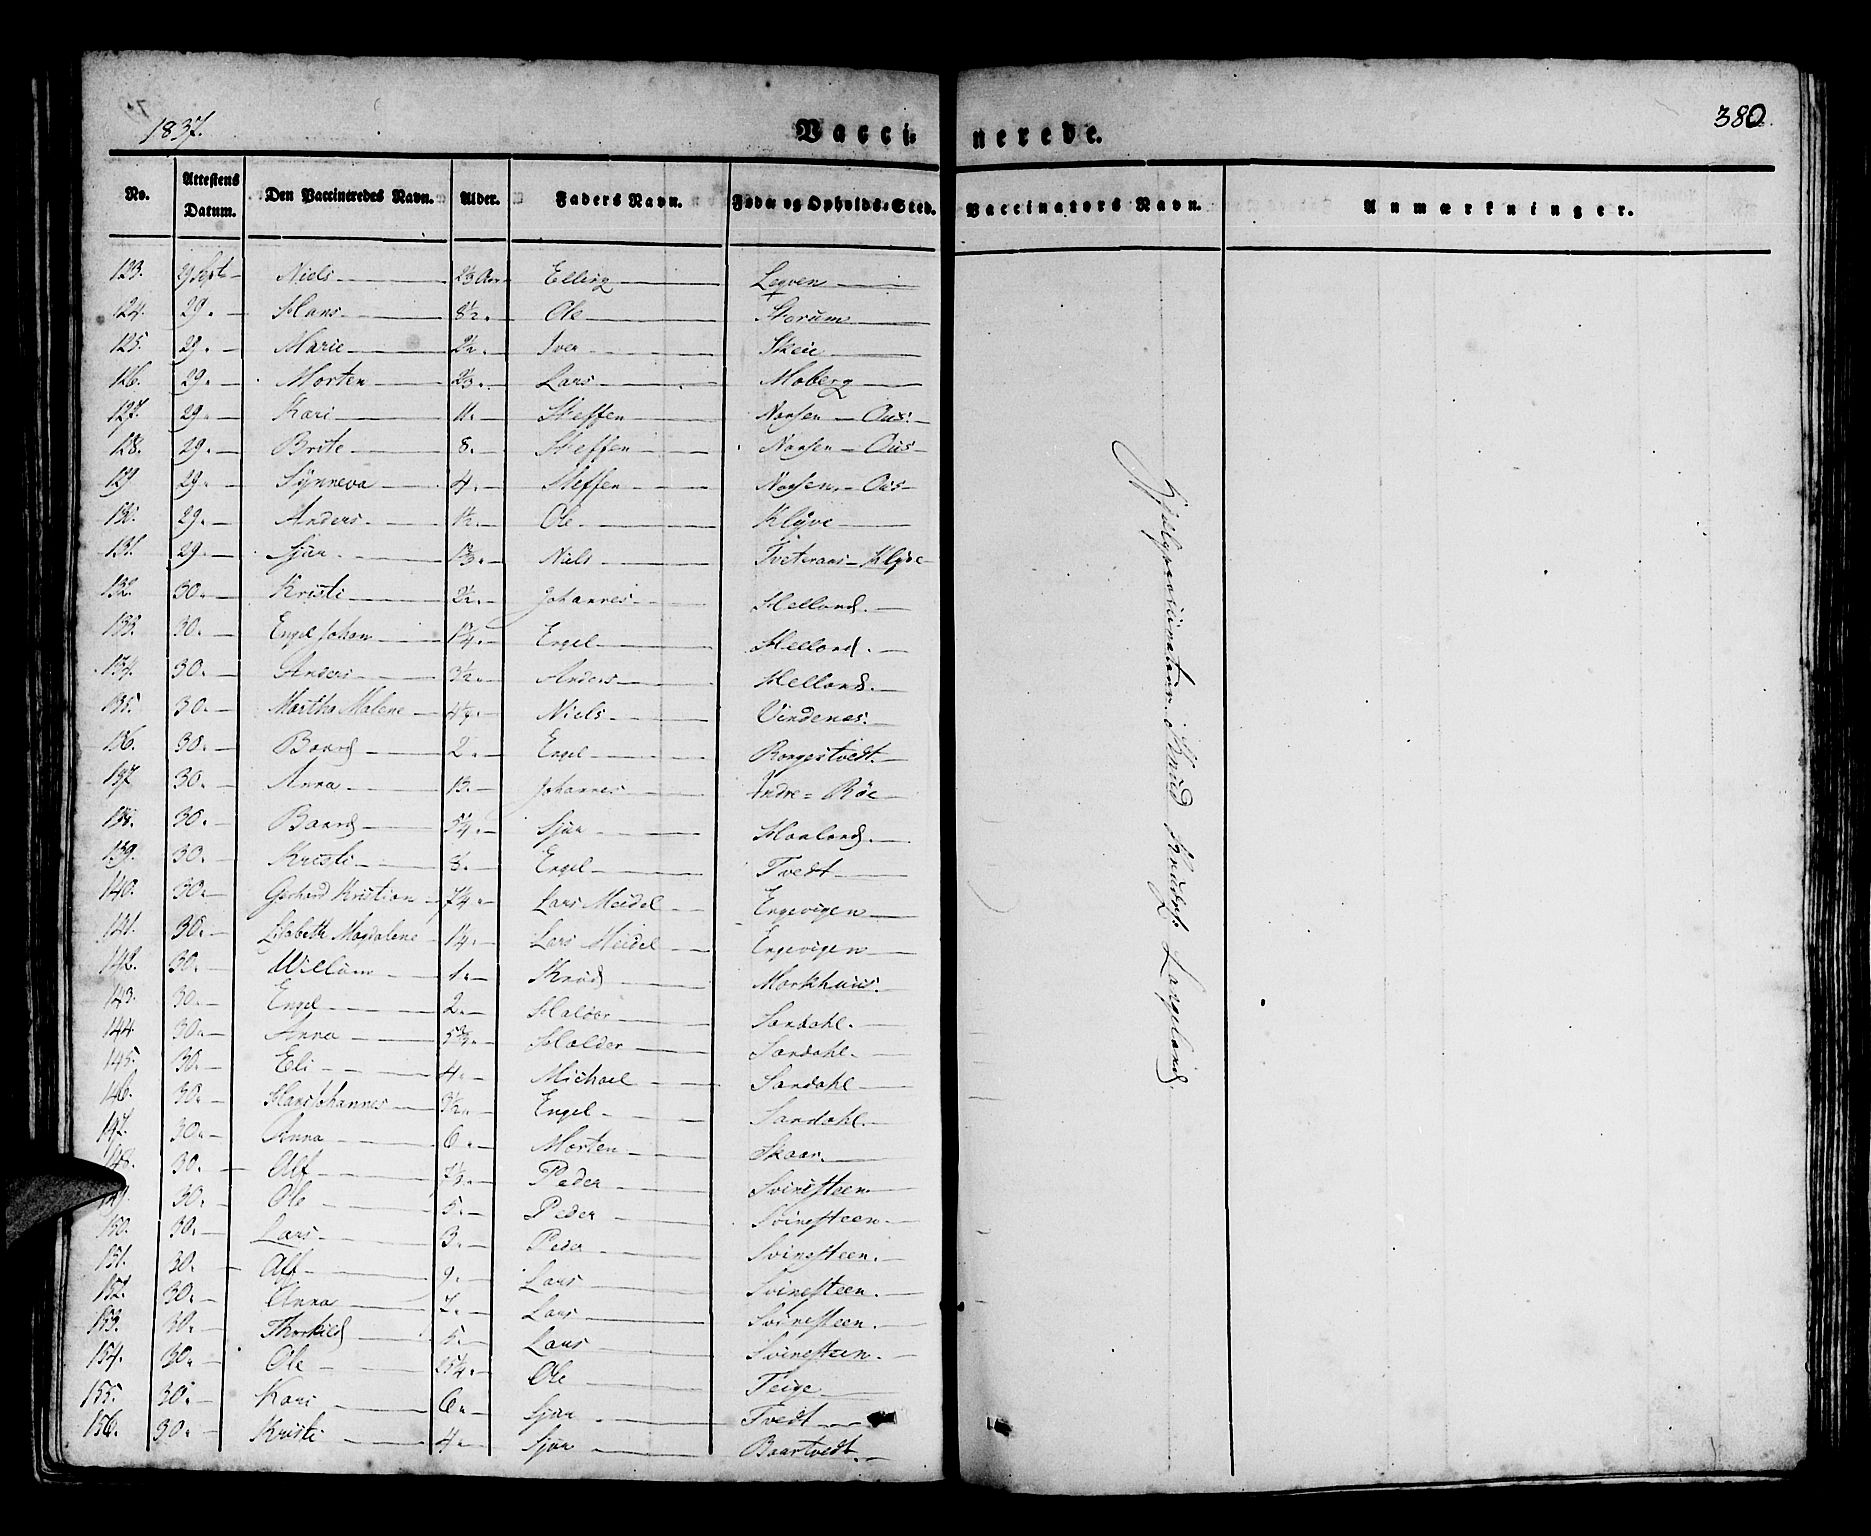 1837.
Vaccinerede.
380
No. Attestens Datum. Den Vaccineredes Navn. Alder. Faders Navn. Føde og Opholds-Sted. Vaccinators Navn. Anmærkninger.
123. 29 Sept Niels Elling
124. 29. Hans 8½. Ole Storum
125. 29. Marie Iver Skeie
126. 29. Morten Lars Moberg
127. 29. Kari 11. Steffen Ous
128. 29. Brite 8. Steffen Ous
129 29. Synneva 4. Steffen Ous
130. 29. Anders 1½. Ole Klyve
131. 29. Sjur Niels Klyve
132. 30. Kristi Johannes Helland.
133. 30. Engel Johan Engel Helland.
134. 30. Anders 3½. Anders Helland.
135. 30. Martha Malene Niels Vindenes.
136. 30. Baard 2. Engel Borgestvedt.
137 30. Anna 13. Johannes Indre= Röe
138. 30. Baard Sjur Haaland.
139. 30. Kristi 8. Engel Tvedt
140. 30. Gerhard Kristian Lars Meidel Engevigen
141. 30. Elisabeth Magdalene Lars Meidel Engevigen
142. 30. Willum 1. Knud Markhuus.
143. 30. Engel 2. Haldor Sandahl.
144. 30. Anna Haldor Sandahl.
145. 30. Eli 4. Michael Sandahl
146. 30. Hans Johannes 3½. Engel Sandahl.
147. 30. Anna 6. Morten Skaar.
148. 30. Alf Peder Svinesteen
149. 30. Ole 5. Peder Svinesteen
150. 30. Lars 3. Peder Svinesteen.
151. 30. Alf 9. Lars Svinesteen.
152. 30. Anna 7. Lars Svinesteen.
153. 30. Thorkild 5. Lars Svinesteen.
154. 30. Ole Ole Teige
155. 30. Kari 6. Sjur Tvedt
156. 30. Kristi 4. Sjur Baartvedt.
Hjelpevaccinateur Knud Knuds: Langeland.